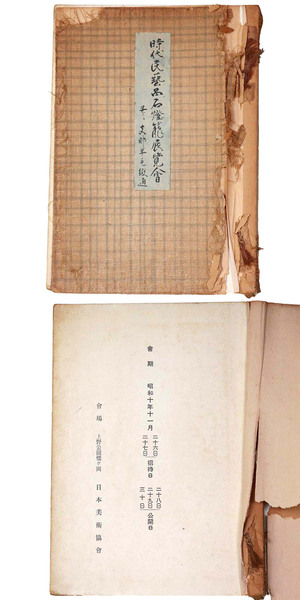 時代民藝品石燈籠展覧會
會期 昭和十年十一月
二十六日
二十七日
招待日
二十八日
二十九日
三十日
公開日
會場 上野公園櫻ヶ岡 日本美術協會